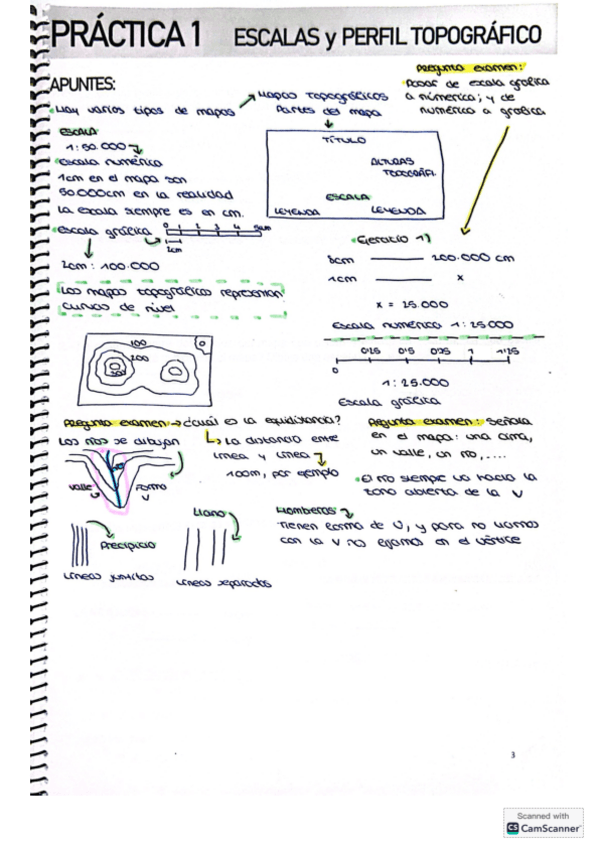 PRÁCTICA 1 ESCALAS y PERFIL TOPOGRÁFICO
APUNTES:
Hay varios tipos de mapas
Mapas topográficos
Partes del mapa
Pregunta examen:
Pasar de escala grafica
a númerica; y de
numérico a grafica
TÍTULO
ALTURAS
TOPOGRÁFI.
ESCALA
LEYENDA LEYENDA
ESCALA
1:50.000
Escala numérica
1cm en el mapa son
50.000cm en la realidad
La escala siempre es en cm.
Escala gráfica
0 1 2 3 4 5cm
2cm
2cm : 100.000
Los mapas topográficos representan
curvas de nivel
Ejercicio 1)
8cm 200.000 cm
1cm x
x = 25.000
Escala numérica 1:25.000
0'25 0'5 0'75 1 1'25
0
1:25.000
Escala gráfica
100
200
300
Pregunta examen → ¿cuál es la equidistancia?
La distancia entre
línea y línea
100m, por ejemplo
Los ríos se dibujan
valle
forma
V
Pregunta examen: Señala
en el mapa: una cima,
un valle, un río, ....
El río siempre va hacia la
zona abierta de la V
Precipicio
Líneas juntitas
Llano
Líneas separadas
Hombreras
Tienen forma de U, y para no liarnos
con la V nos fijamos en el vértice
3
Scanned with
CS CamScanner